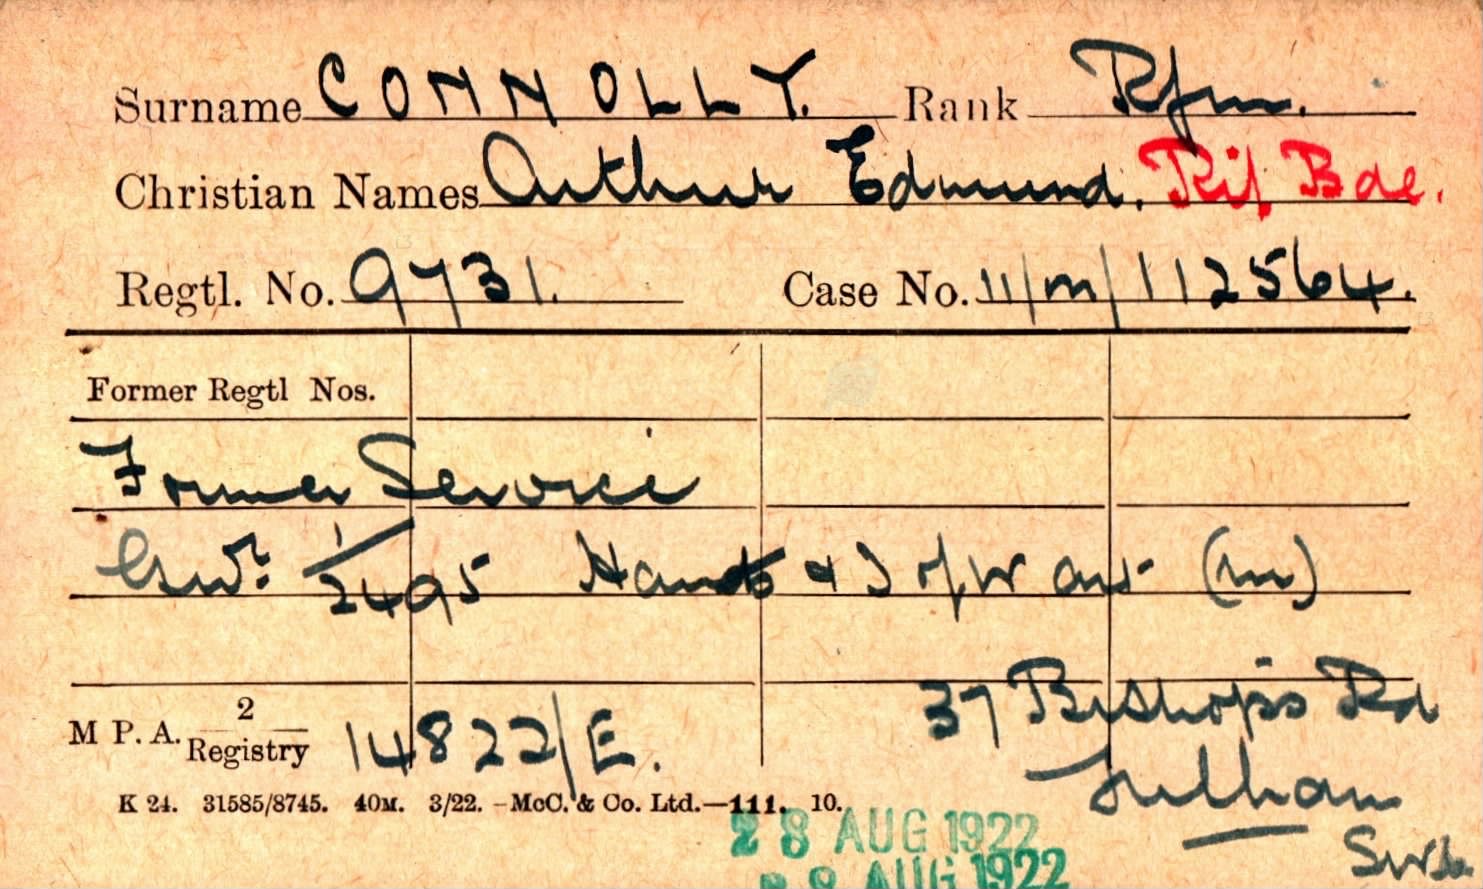 Surname CONNOLLY. Rank Rfm.
Christian Names Arthur Edmund. Rif Bde.
Regtl. No. 9731. Case No. 11/M/112564.
Former Regtl Nos.
Former Service
1/2495 Hants & I of W (m)
37 Bishops Rd
M P. A. 2/Registry 14822/E.
Fulham
K 24. 31585/8745. 40M. 3/22. - McC. & Co. Ltd.—111. 10.
28 AUG 1922
AUG 1922